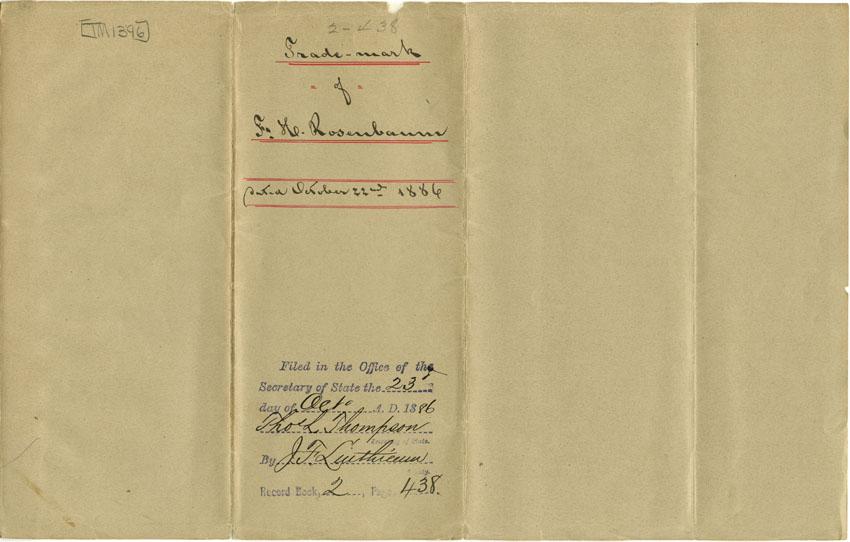 TM1396
2-438
Trade-mark
" of "
F. H. Rosenbaum
Dated October 22nd 1886
Filed in the Office of the
Secretary of State the 23d
day of Octo A. D. 1886
Thos L Thompson
Secretary of State.
By J. F. Linthicum
Deputy.
Record Book, 2, Page 438.